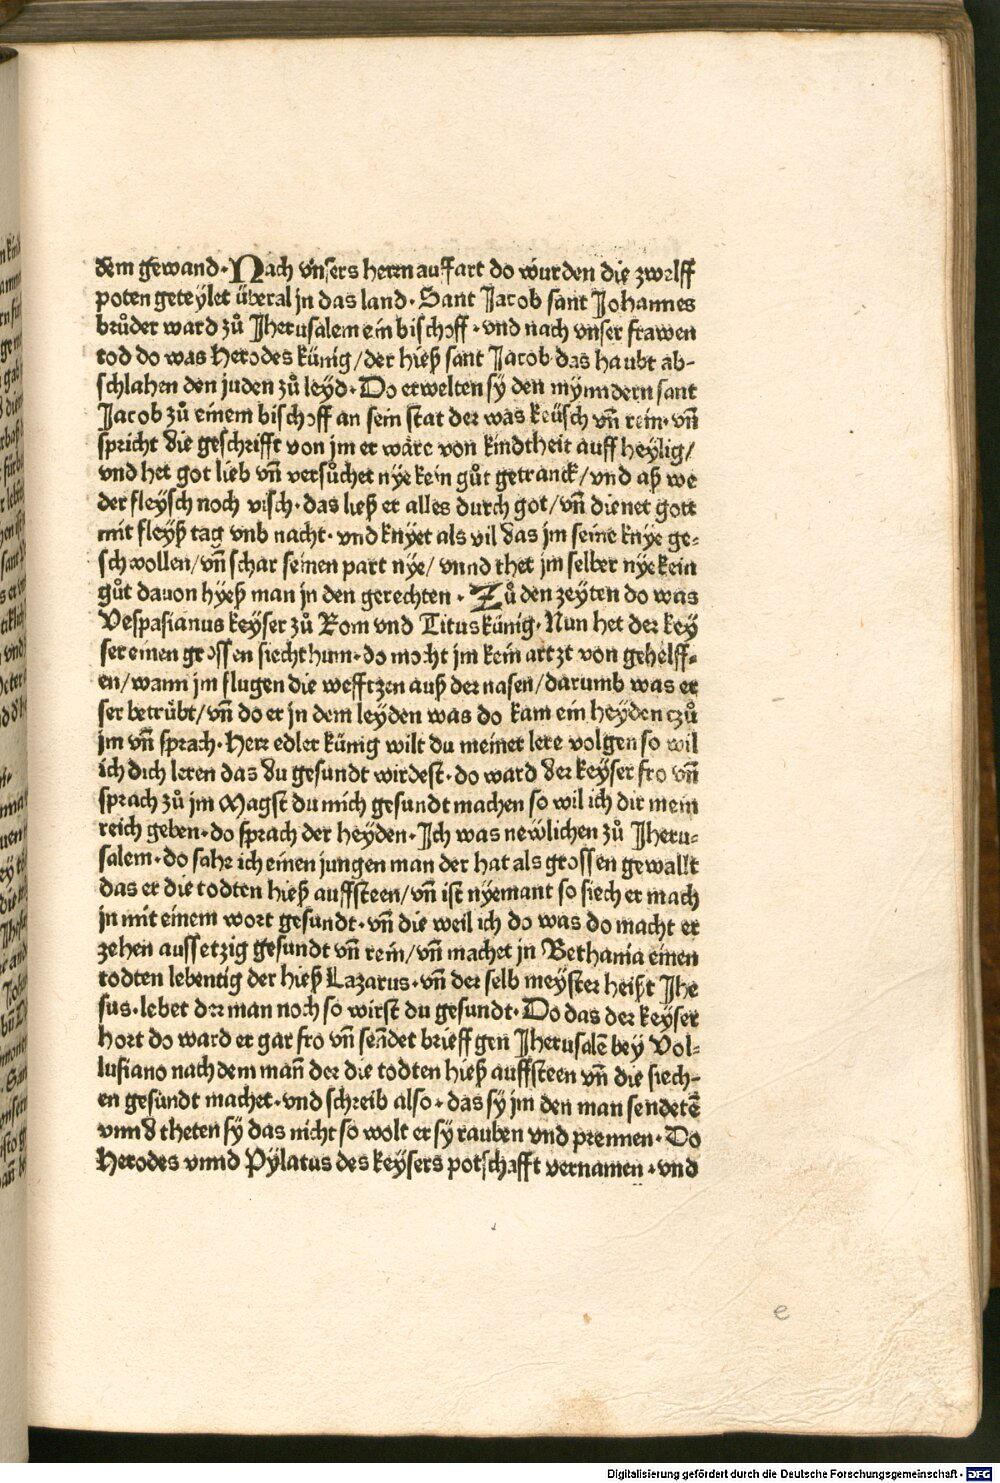 dem gewand· Nach vnsers herrn auffart do wurden die zwelff
poten geteylet überal in das land· Sant Jacob sant Johannes
brůder ward zů Jherusalem ein bischoff· vnd nach vnser frawen
tod do was Herodes künig/der hieß sant Jacob das haubt ab-
schlahen den juden zů leyd· Do erwelten sy den mynndern sant
Jacob zů einem bischoff an sein stat der was keüsch vñ rein· vñ
spricht die geschrifft von jm er wäre von kindtheit auff heylig/
vnd het got lieb vñ versůchet nye kein gůt getranck/vnd aß we
der fleysch noch visch· das ließ er alles durch got/vñ dienet gott
mit fleyß tag vnb nacht· vnd knyet als vil das jm seine knye ge-
schwollen/vñ schar seinen part nye/ vnnd thet jm selber nye kein
gůt dauon hyeß man in den gerechten· Zů den zeyten do was
Vespasianus keyser zů Rom vnd Titus künig· Nun het der key
ser einen grossen siechthum· do mocht jm kein artzt von gehelff-
en/wann jm flugen die wefftzen auß der nasen/darumb was er
ser betrübt/vñ do er in dem leyden was do kam ein heyden czů
jm vñ sprach· Herr edler künig wilt du meiner lere volgen so wil
ich dich leren das du gesundt wirdest· do ward der keyser fro vñ
sprach zů jm Magst du mich gesundt machen so wil ich dir mein
reich geben· do sprach der heyden· Ich was newlichen zů Jheru-
salem· do sahe ich einen jungen man der hat als grossen gewallt
das er die todten hieß auffsteen/vñ ist nyemant so siech er mach
jn mit einem wort gesundt· vñ die weil ich do was do macht er
zehen aussetzig gesundt vñ rein/vñ machet in Bethania einen
todten lebentig der hieß Lazarus· vñ der selb meyster heißt Jhe
sus· lebet der man noch so wirst du gesundt· Do das der keyser
hort do ward er gar fro vñ sendet brieff gen Jherusalē bey Vol-
lusiano nach dem mañ der die todten hieß auffsteen vñ die siech-
en gesundt machet· vnd schreib also· das sy jm den man sendetē
vnnd theten sy das nicht so wolt er sy rauben vnd prennen· Do
Herodes vnnd Pylatus des keysers potschafft vernamen· vnd
e
Digitalisierung gefördert durch die Deutsche Forschungsgemeinschaft - DFG